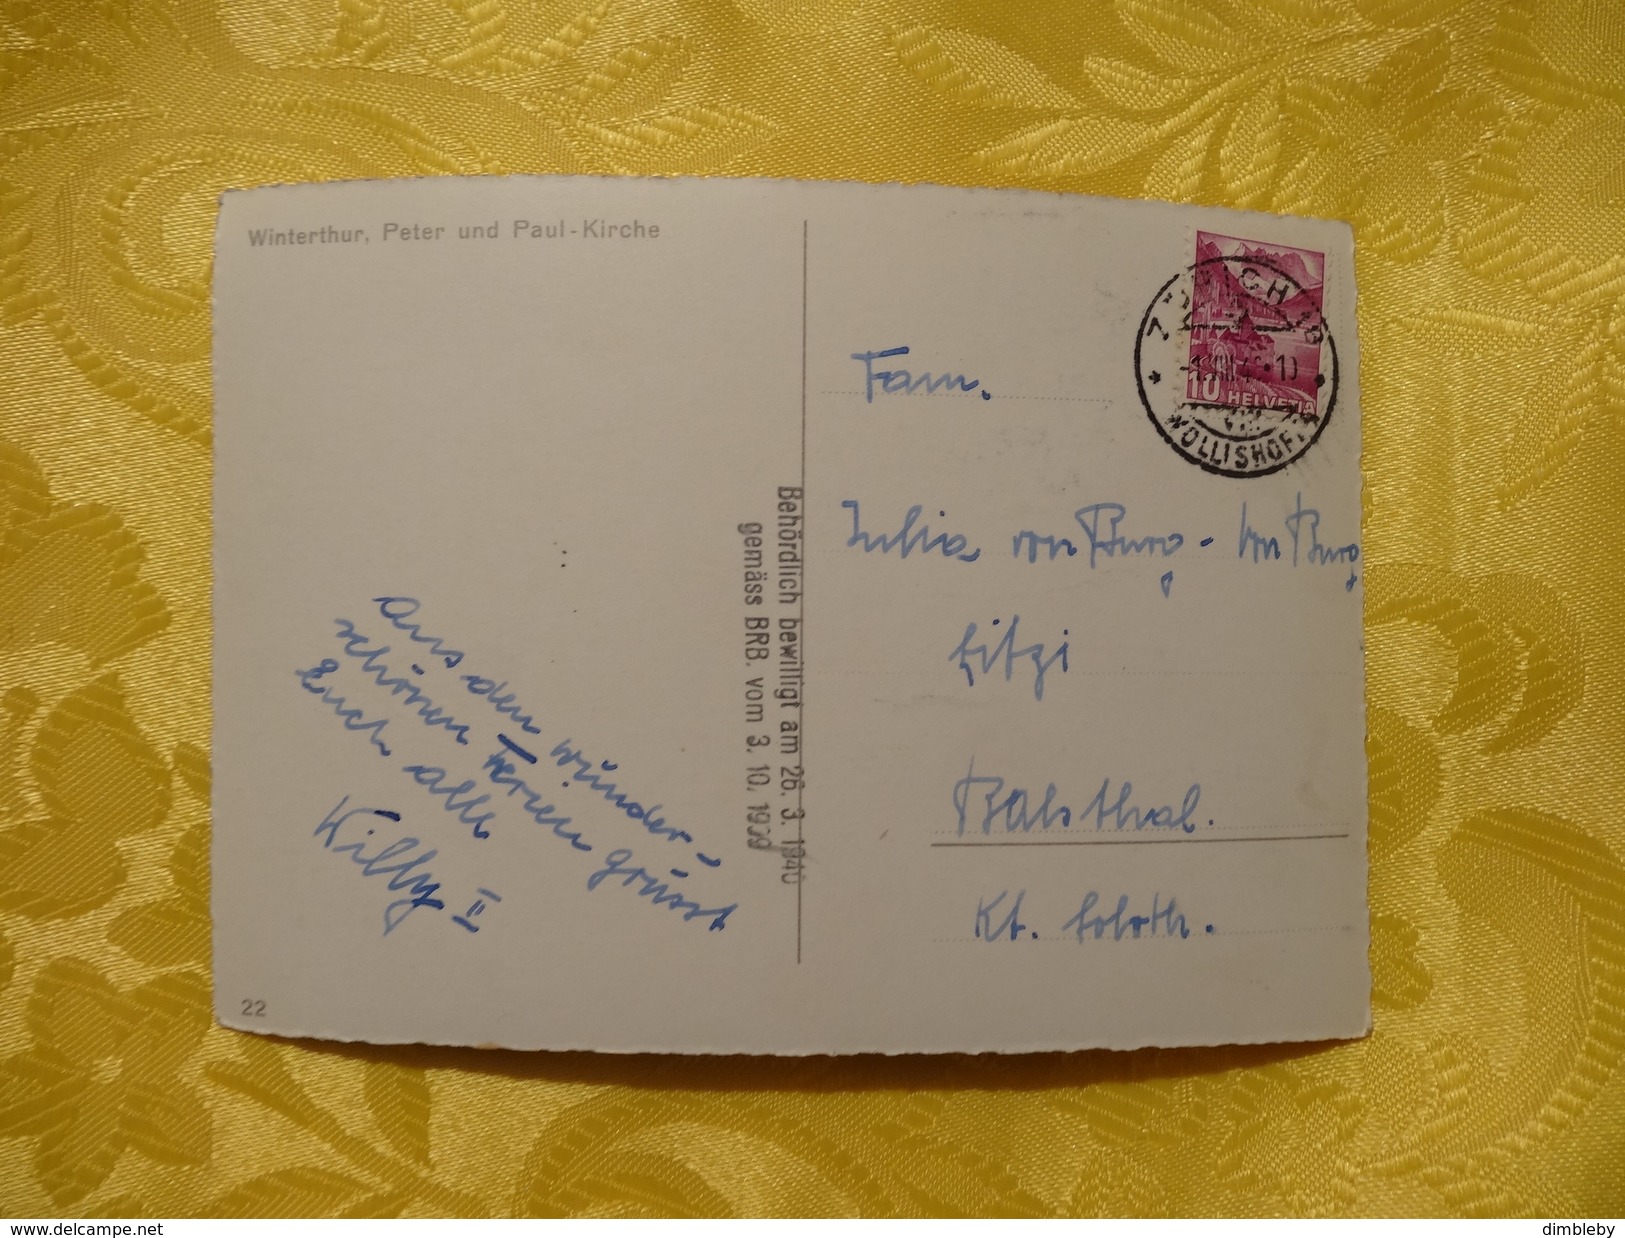 Winterthur, Peter und Paul-Kirche
Aus den wunder-
schönen Ferien grüsst
Euch alle
Willy II
22
Behördlich bewilligt am 26. 3. 1940
gemäss BRB. vom 3. 10. 1939
10 HELVETIA
WOLLISHOFEN
Fam.
Julia von Burg - Von Burg
Balsthal.
Kt. Soloth.
www.delcampe.net
dimbleby